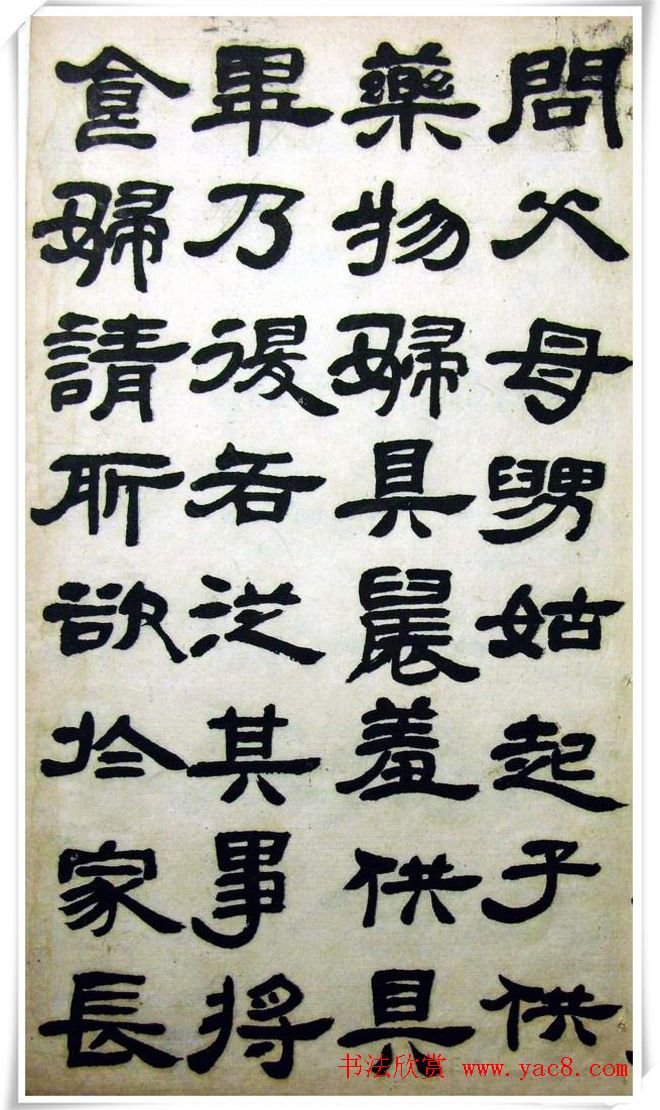 問父母舅姑起子供
藥物婦具晨羞供具
畢乃復各從其事将
食婦請所欲於家長
书法欣赏 www.yac8.com